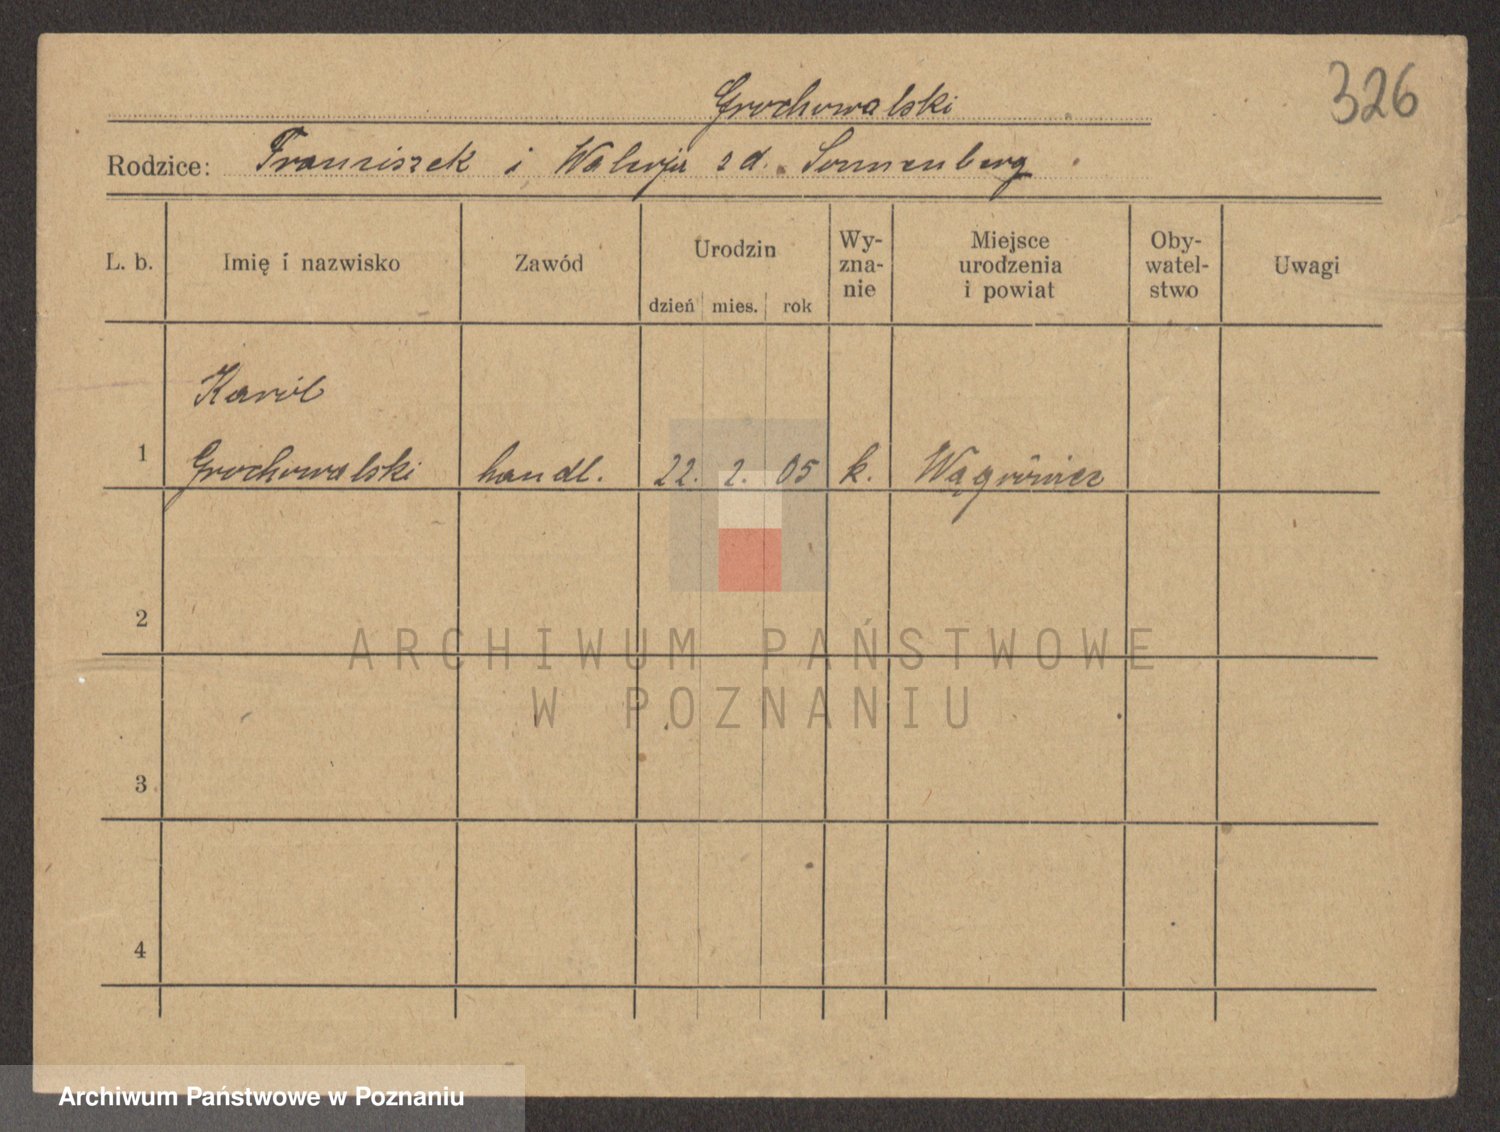 326
Grochowalski
Rodzice: Franciszek i Walerja zd. Sonnenberg
L. b. Imię i nazwisko Zawód Urodzin dzień mies. rok Wy-zna-nie Miejsce urodzenia i powiat Oby-watel-stwo Uwagi
Karol
1 Grochowalski handl. 22. 2. 05 k. Wągrówiec
2
ARCHIWUM PAŃSTWOWE
W POZNANIU
3
4
Archiwum Państwowe w Poznaniu